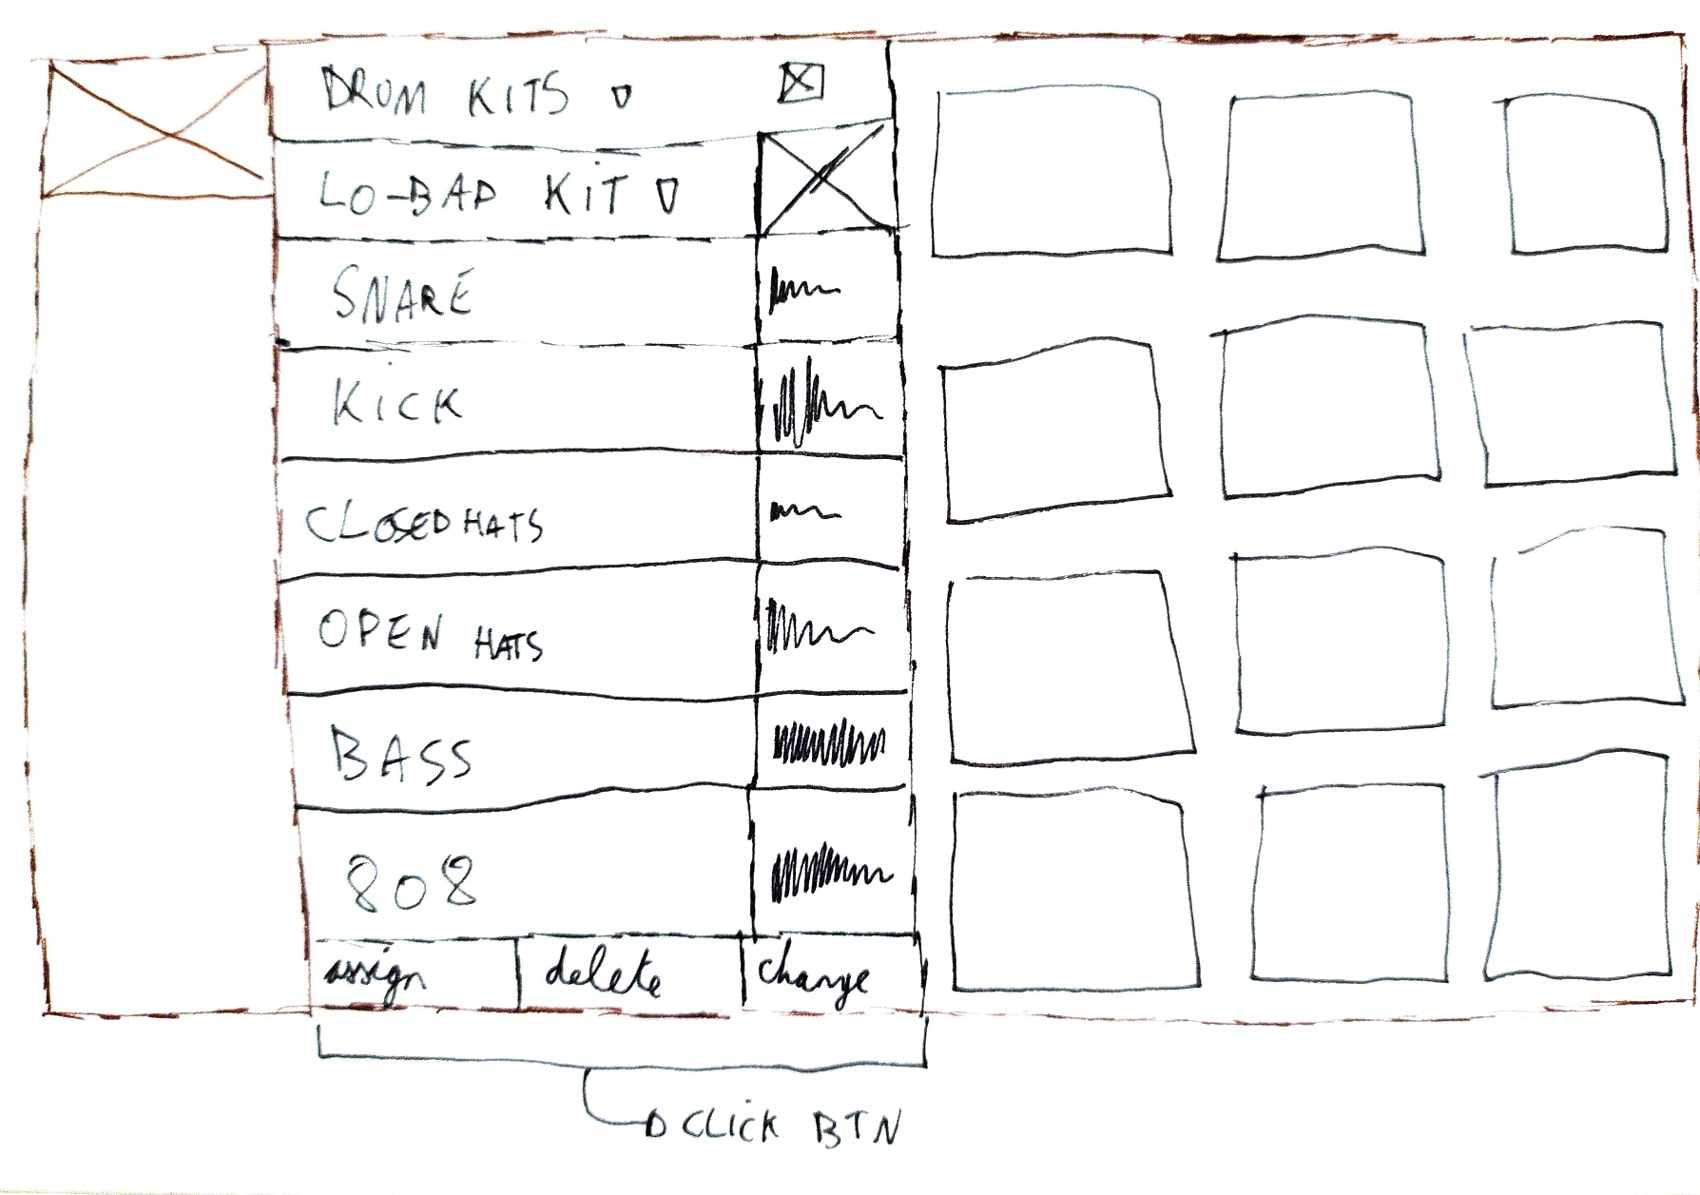 DRUM KITS
LO-BAP KIT
SNARE
KiCK
CLOSED HATS
OPEN HATS
BASS
808
assign delete change
CLiCK BTN